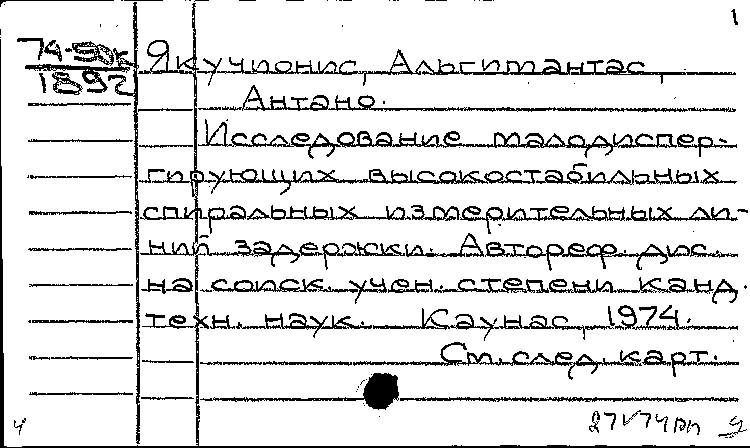 1
74-5ок
1892
Якучионис, Альгимантас
Антано.
Исследование малодиспер-
гирующих высокостабильных
спиральных измерительных ли-
ний задержки. Автореф. дис.
на соиск. учен. степени канд.
техн. наук. Каунас, 1974.
См. след. карт.